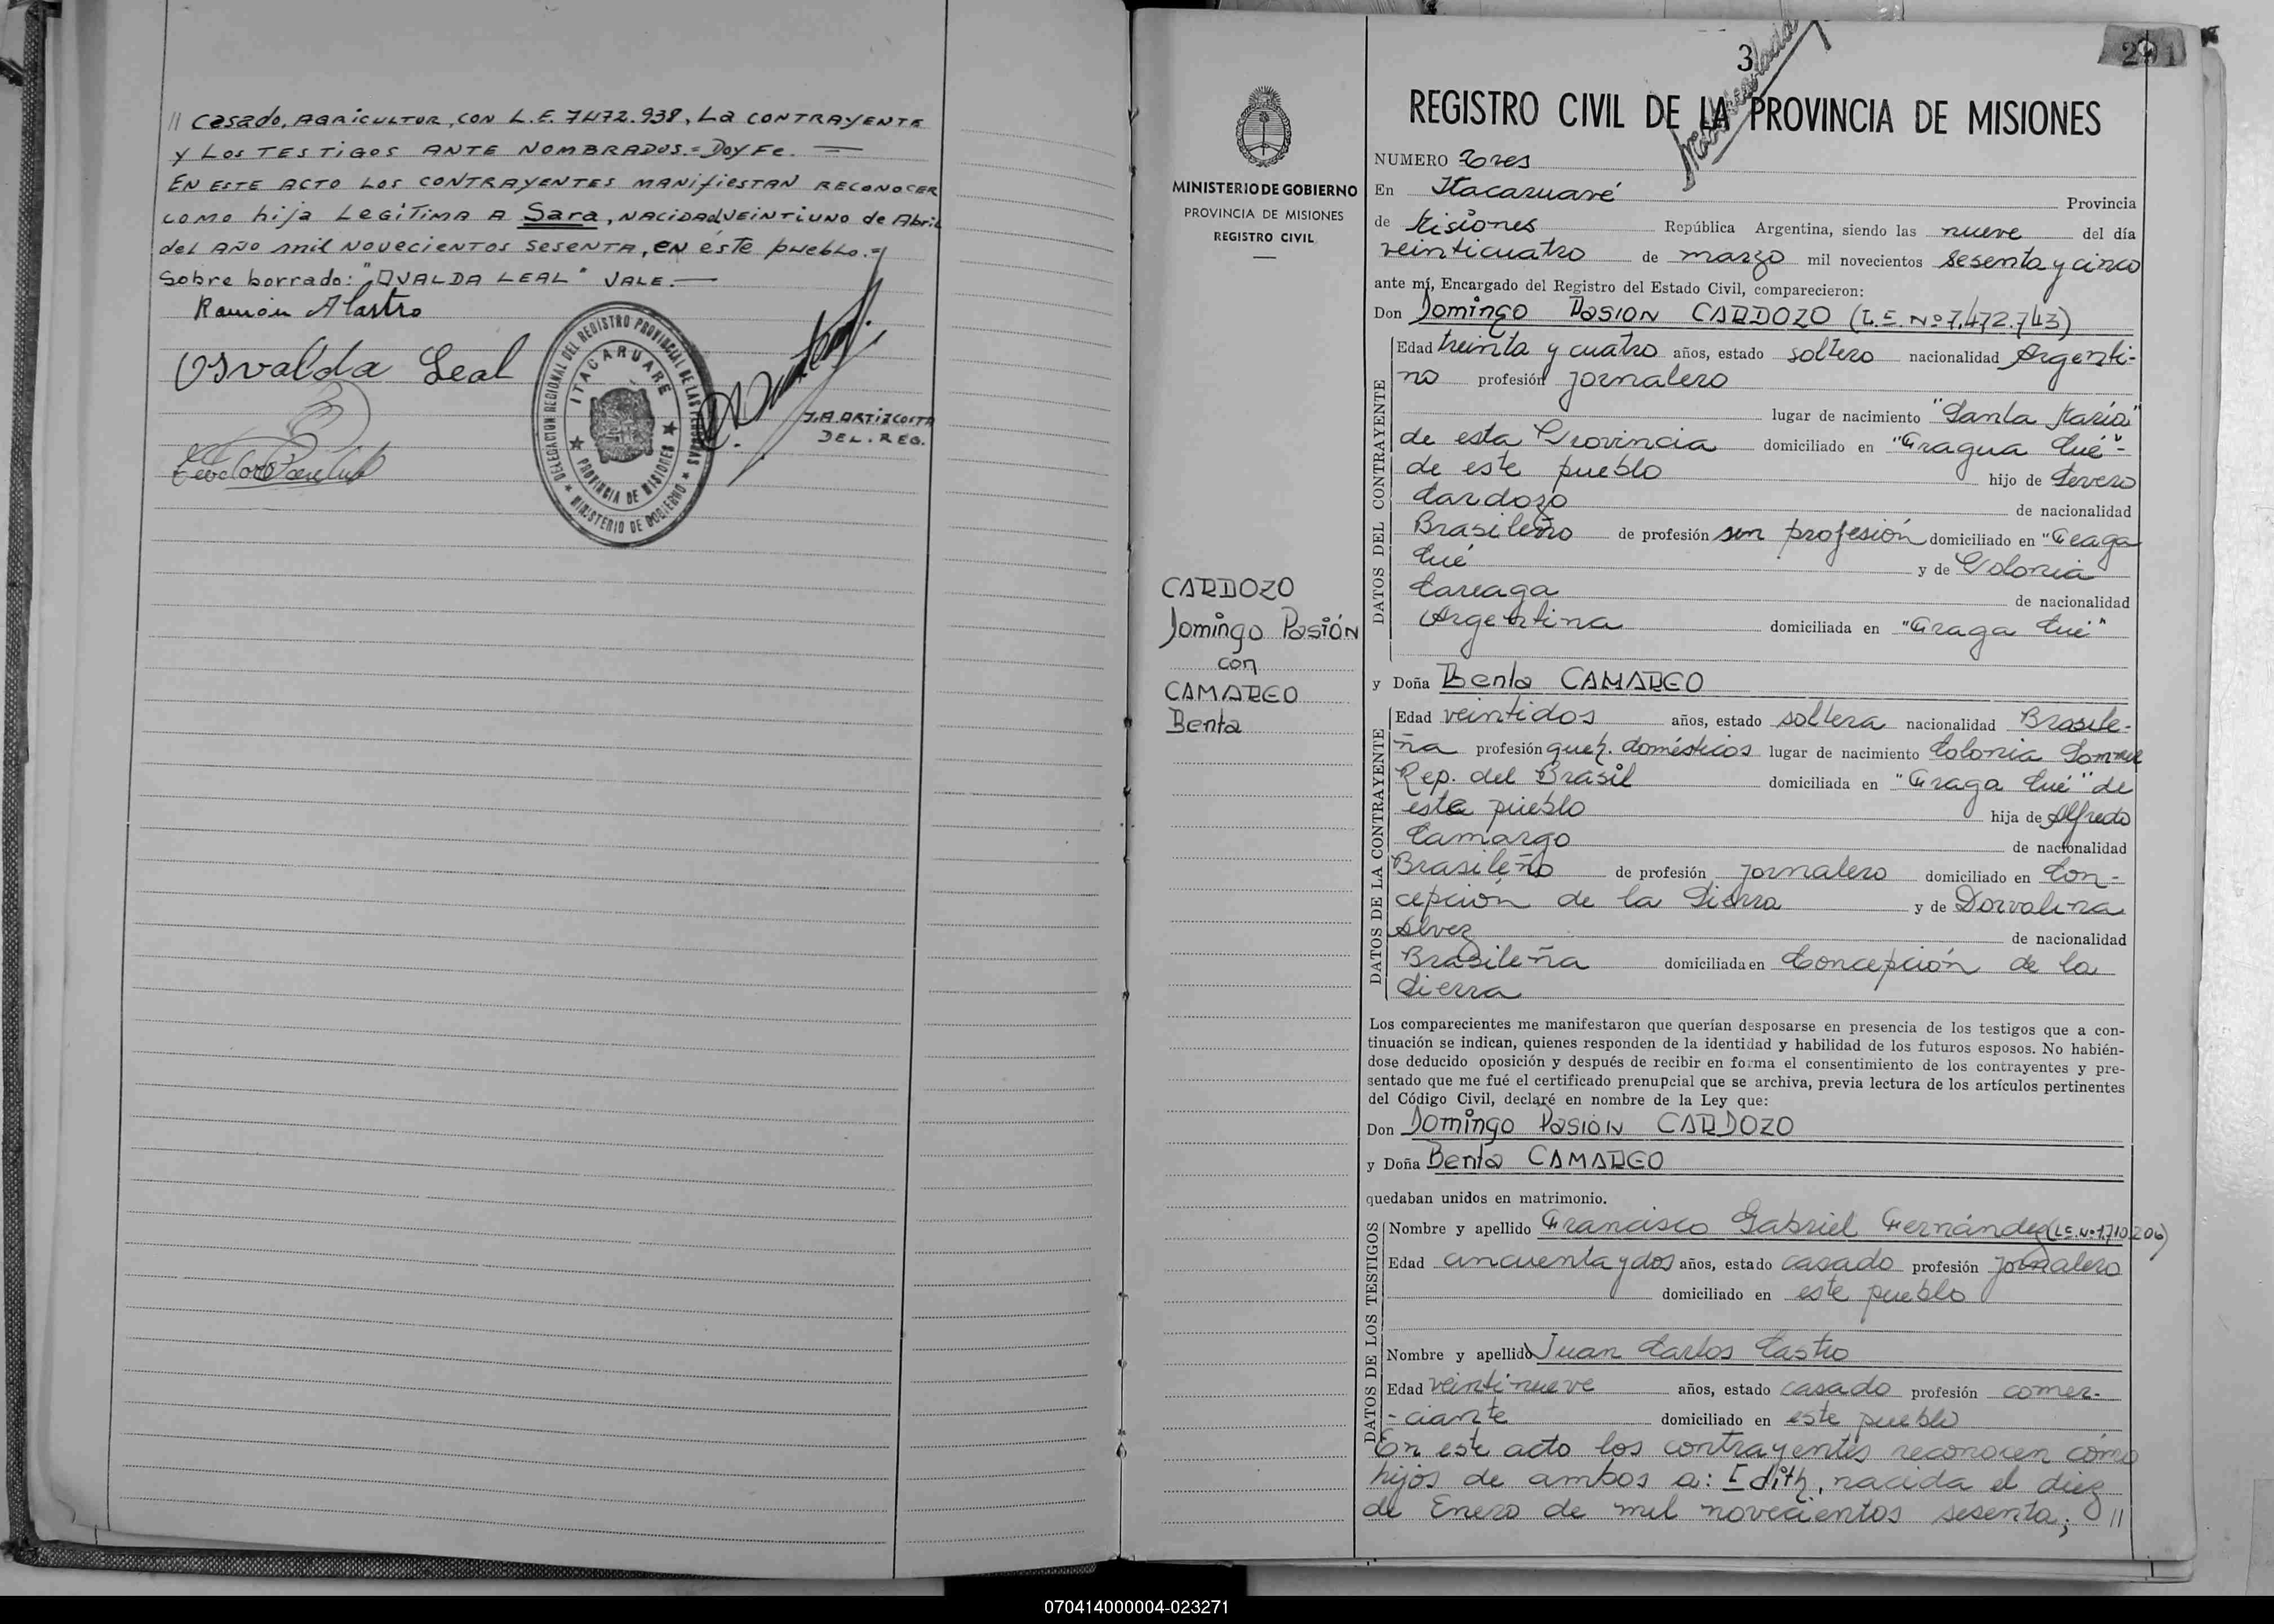 // Casado, AGRICULTOR, CON L.E. 7472.938, LA CONTRAYENTE
Y LOS TESTIGOS ANTE NOMBRADOS.= DOY FE. —
EN ESTE ACTO LOS CONTRAYENTES MANIFIESTAN RECONOCER
COMO hija LEGITIMA A Sara, NACIDA el VEINTIUNO de Abril
del AÑO mil NOVECIENTOS SESENTA, EN éste pueblo.=
Sobre borrado: "OVALDA LEAL" VALE.—
Ramón A Castro
Osvalda Leal
DELEGACION REGIONAL DEL REGISTRO PROVINCIAL DE LAS PERSONAS
ITACARUARE
PROVINCIA DE MISIONES
MINISTERIO DE GOBIERNO
J.A. ORTIZ COSTA
DEL. REG.
3
291
REGISTRO CIVIL DE LA PROVINCIA DE MISIONES
MINISTERIO DE GOBIERNO
PROVINCIA DE MISIONES
REGISTRO CIVIL
CARDOZO
Domingo Pasión
con
CAMARGO
Benta
NUMERO Tres
En Itacaruaré Provincia
de Misiones República Argentina, siendo las nueve del día
veinticuatro de marzo mil novecientos sesenta y cinco
ante mí, Encargado del Registro del Estado Civil, comparecieron:
Don Domingo PASION CARDOZO (L.E. Nº 7.472.743)
DATOS DEL CONTRAYENTE
Edad treinta y cuatro años, estado soltero nacionalidad Argenti-
no profesión jornalero
lugar de nacimiento "Santa María"
de esta Provincia domiciliado en "Fragua Cué"-
de este pueblo hijo de Severo
Cardozo de nacionalidad
Brasileño de profesión sin profesión domiciliado en "Fraga
Cué y de Polonia
Careaga de nacionalidad
Argentina domiciliada en "Fraga Cué"
y Doña Benta CAMARGO
DATOS DE LA CONTRAYENTE
Edad veintidos años, estado soltera nacionalidad Brasile-
ña profesión queh. domésticos lugar de nacimiento Colonia
Rep. del Brasil domiciliada en "Fraga Cué" de
este pueblo hija de Alfredo
Camargo de nacionalidad
Brasileño de profesión jornalero domiciliado en Con-
cepción de la Sierra y de Dorvalina
Alvez de nacionalidad
Brasileña domiciliada en Concepción de la
Sierra
Los comparecientes me manifestaron que querían desposarse en presencia de los testigos que a con-
tinuación se indican, quienes responden de la identidad y habilidad de los futuros esposos. No habién-
dose deducido oposición y después de recibir en forma el consentimiento de los contrayentes y pre-
sentado que me fué el certificado prenupcial que se archiva, previa lectura de los artículos pertinentes
del Código Civil, declaré en nombre de la Ley que:
Don Domingo Pasión CARDOZO
y Doña Benta CAMARGO
quedaban unidos en matrimonio.
DATOS DE LOS TESTIGOS
Nombre y apellido Francisco Gabriel Fernández (L.E. Nº 1.710.206)
Edad cincuenta y dos años, estado casado profesión jornalero
domiciliado en este pueblo
Nombre y apellido Juan Carlos Castro
Edad veintinueve años, estado casado profesión comer-
-ciante domiciliado en este pueblo
En este acto los contrayentes reconocen como
hijos de ambos a: Edith, nacida el diez
de Enero de mil novecientos sesenta; //
070414000004-023271